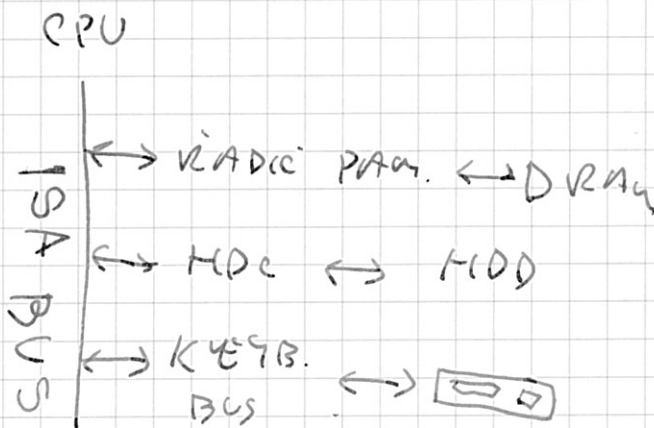 CPU
ISA BUS
ŘADIČ PAM. DRAM
HDC HDD
KEYB.
BUS